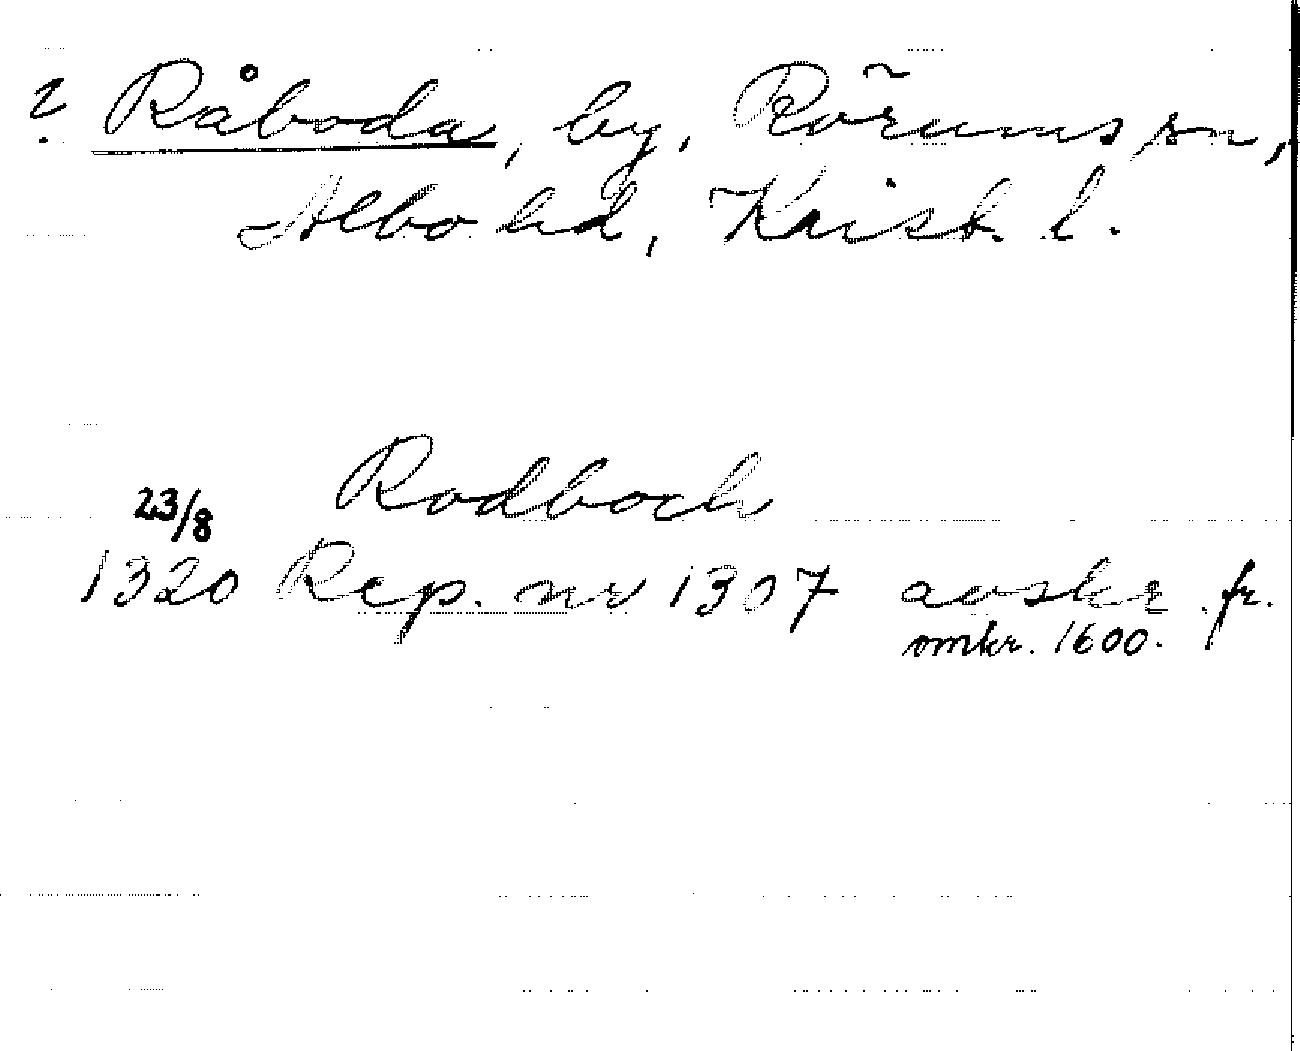 ? Råboda, by, Rörums sn,
Albo hd, Krist. l.
Rodboch
23/8
1320 Rep. nr 1307 avskr. fr.
omkr. 1600.